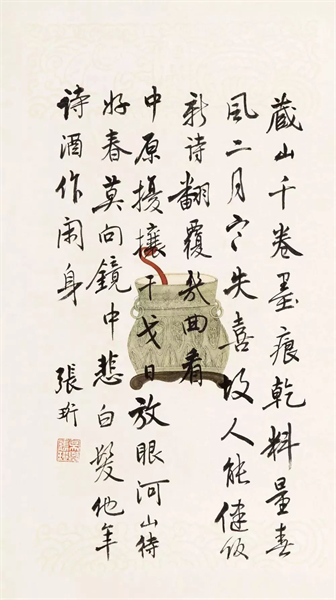 藏山千卷墨痕乾料量春
風二月寒失喜故人能健飯
新詩翻覆幾回看
中原擾攘干戈日放眼河山待
好春莫向鏡中悲白髮他年
詩酒作閑身
張珩